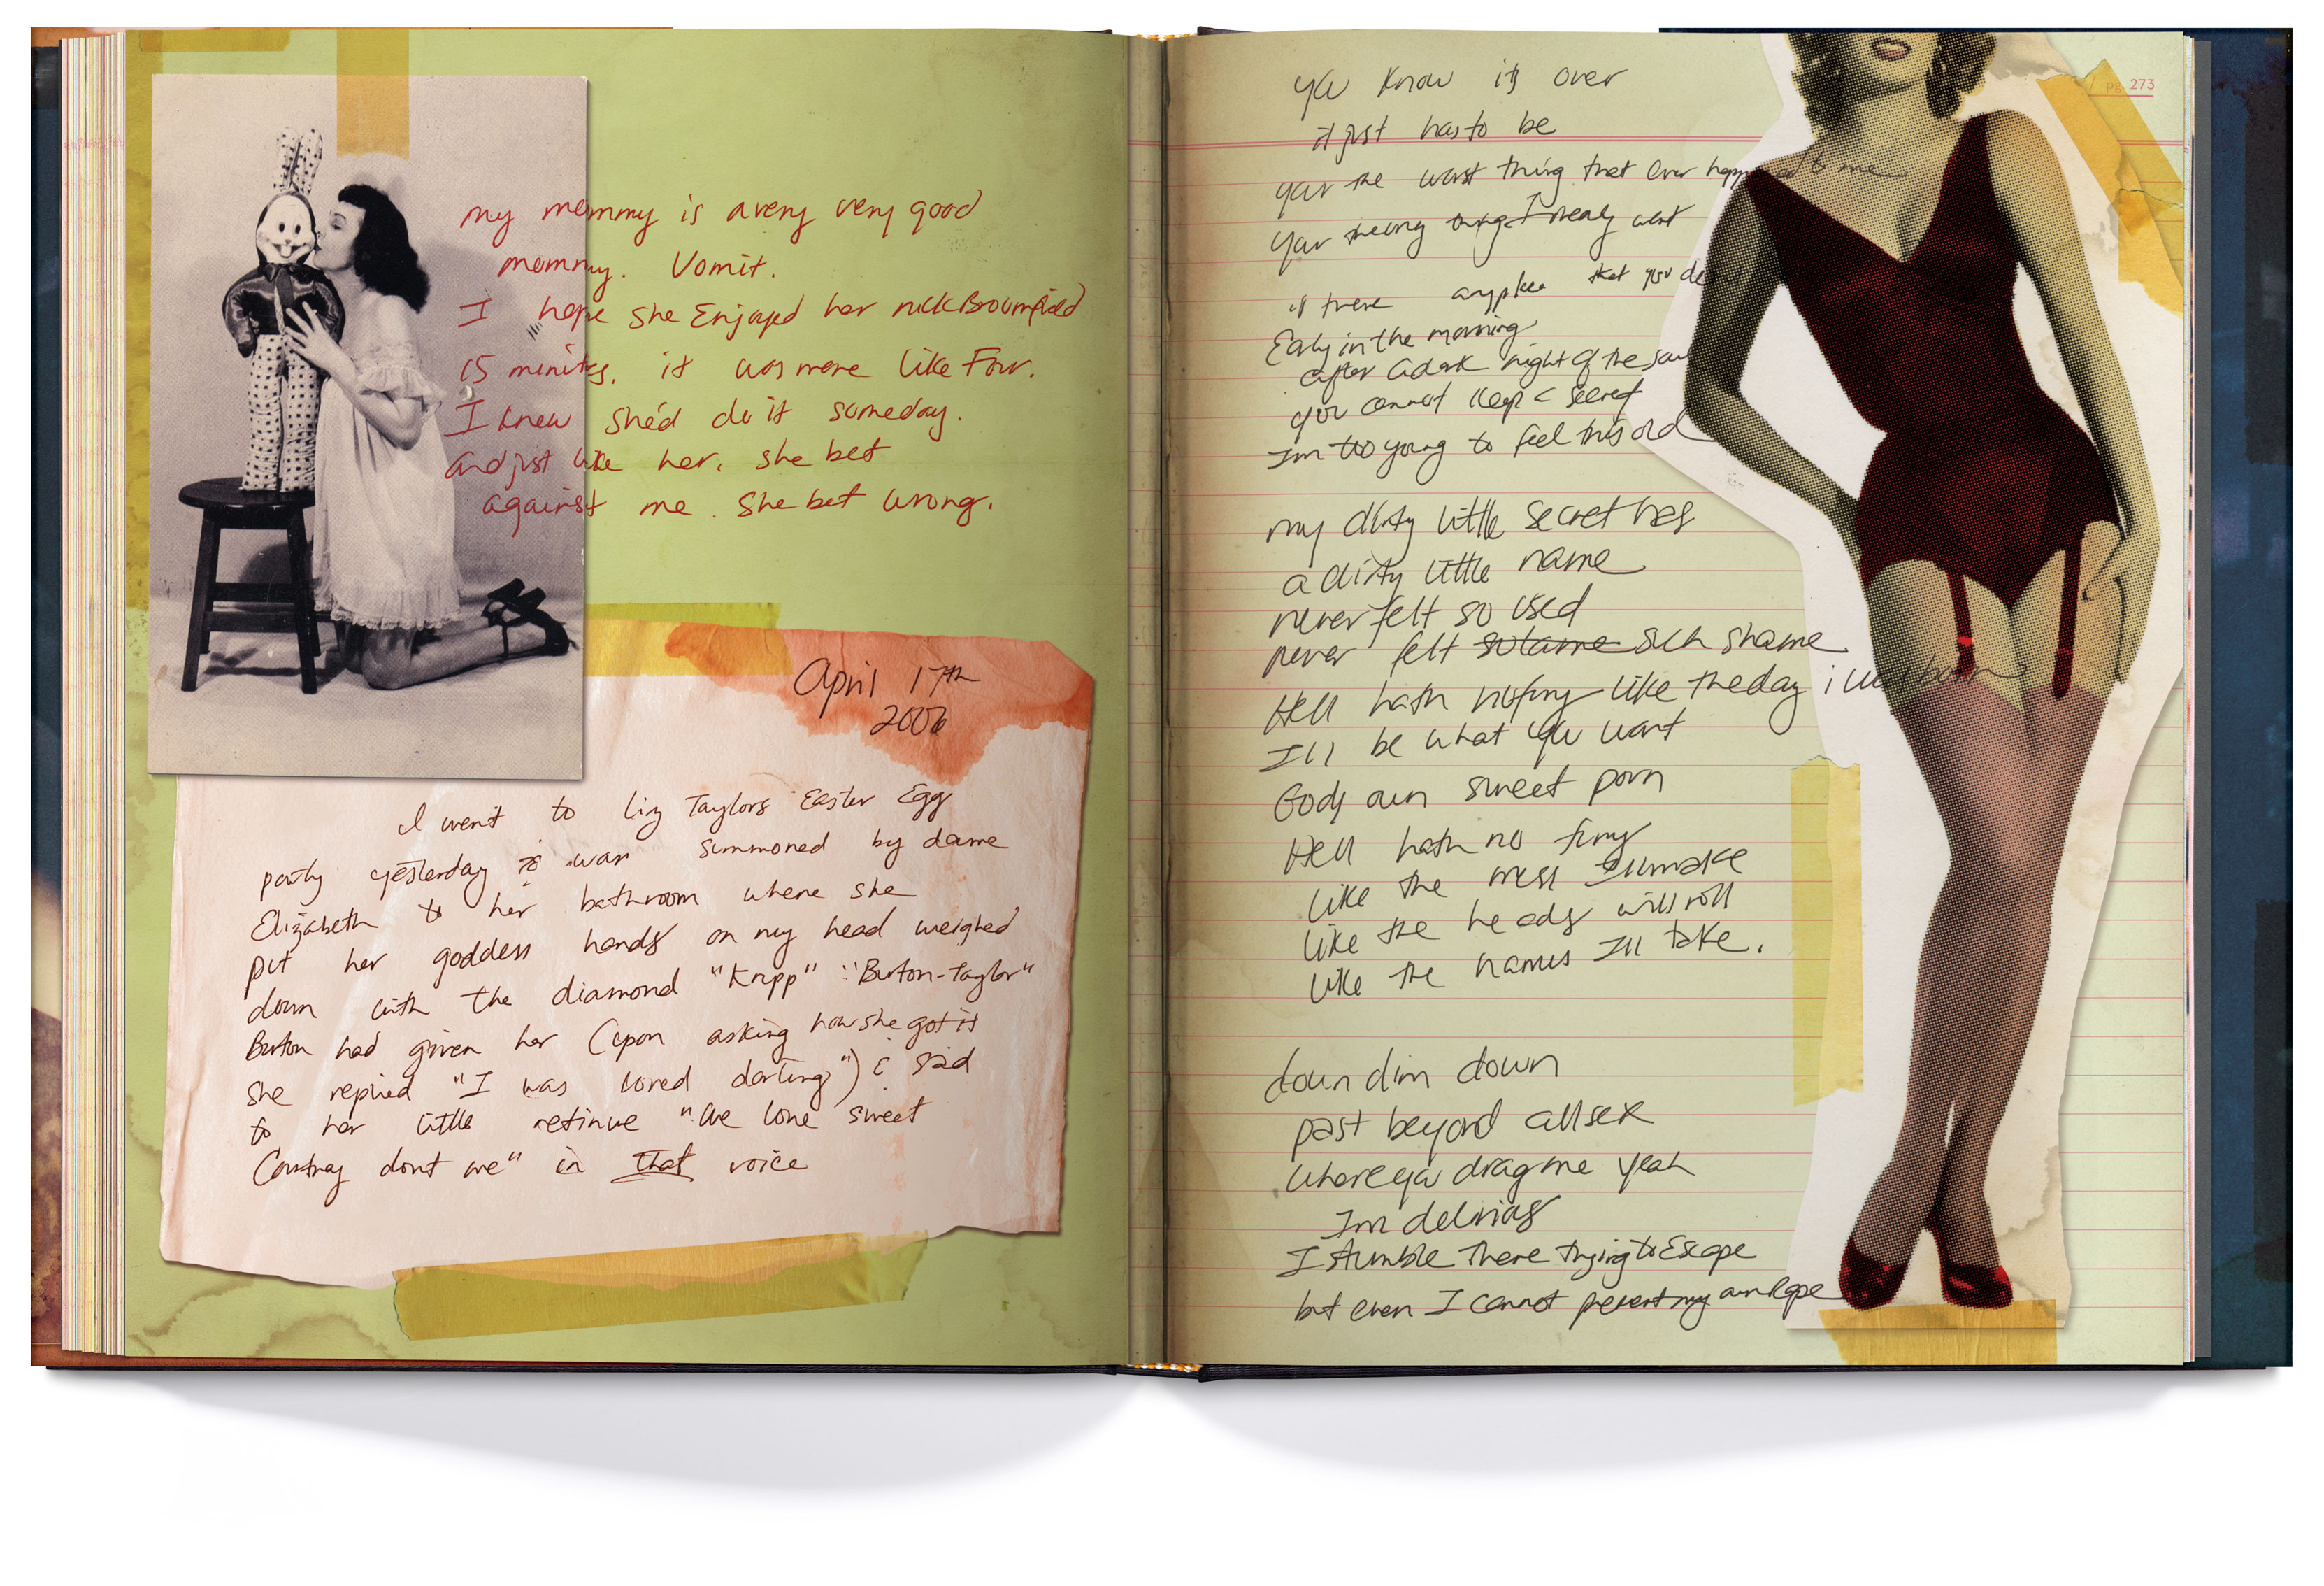 my mommy is a very very good
mommy. Vomit.
I hope she Enjoyed her nick Broomfield
15 minites, it was more like Four.
I knew she'd do it someday.
and just like her, she bet
against me. She bet wrong.
April 17th
2006
I went to Liz Taylors Easter Egg
party yesterday & was summoned by dame
Elizabeth to her bathroom where she
put her goddess hands on my head weighed
down with the diamond "Krupp" "Burton-Taylor"
Burton had given her (upon asking how she got it
she replied "I was loved darling") & said
to her little retinue "We love sweet
Courtney dont we" in that voice
pg. 273
you know its over
it just has to be
your the worst thing that Ever happened to me
your the only thing I really want
is there anyplace that you dont
Early in the morning
after a dark night of the soul
you cannot keep a secret
Im too young to feel this old
my dirty little secret has
a dirty little name
never felt so used
never felt so lame such shame
Hell hath no fury like the day i was born
I'll be what you want
Gods own sweet porn
Hell hath no fury
like the mess I'll make
like the heads will roll
like the names I'll take.
down dim down
past beyond all sex
where ya drag me yeah
Im delirious
I stumble there trying to Escape
but even I cannot prevent my own Rape